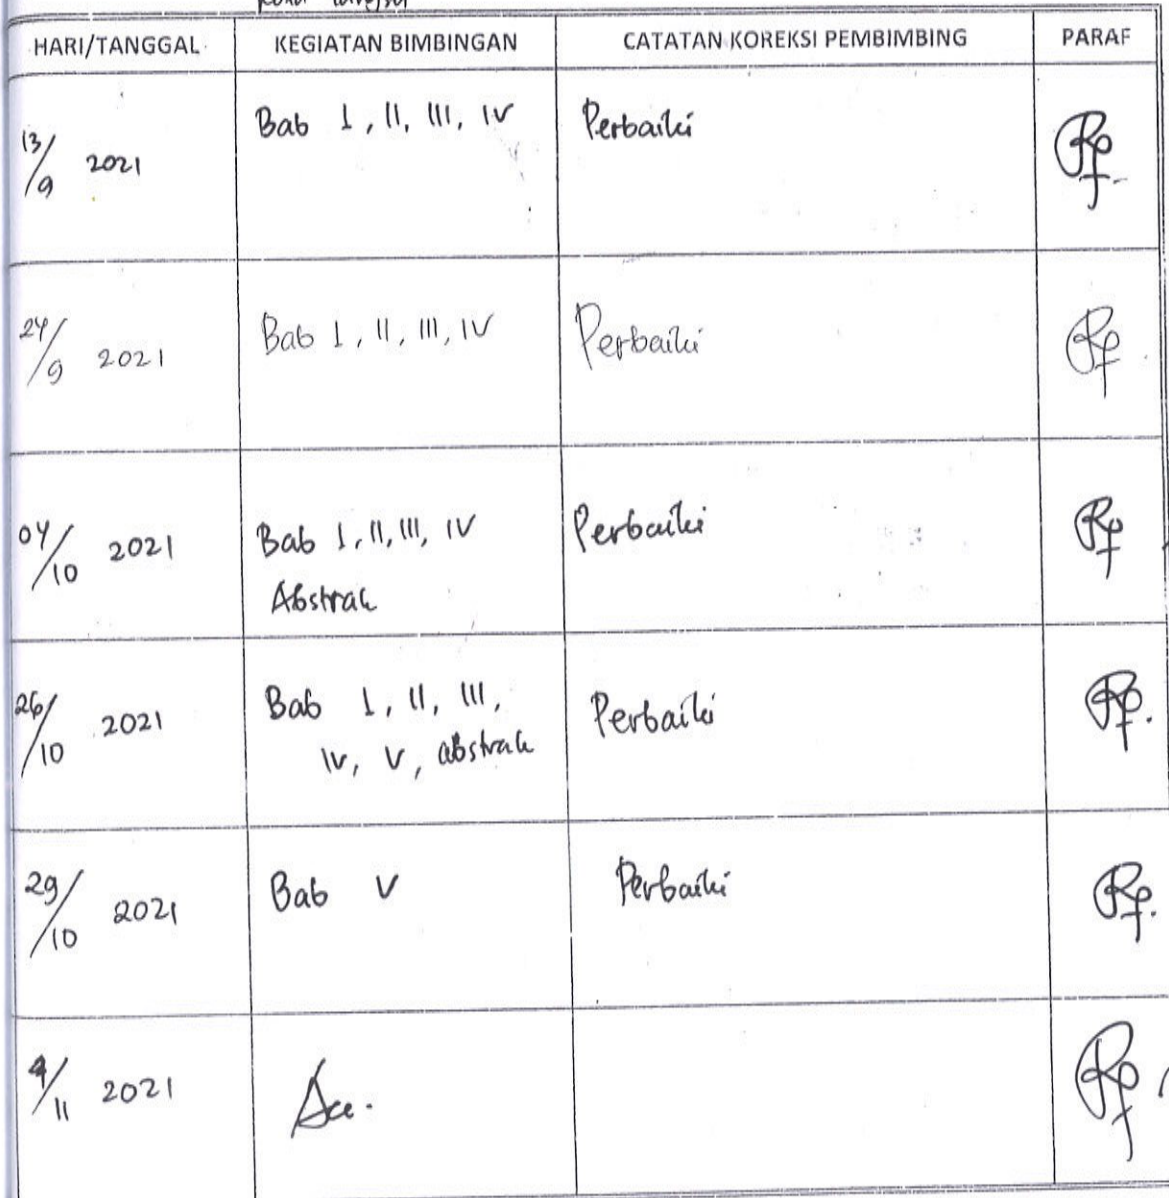 HARI/TANGGAL KEGIATAN BIMBINGAN CATATAN KOREKSI PEMBIMBING PARAF
13/9 2021 Bab I, II, III, IV Perbaiki
24/9 2021 Bab I, II, III, IV Perbaiki
04/10 2021 Bab I, II, III, IV Perbaiki
Abstrak
26/10 2021 Bab I, II, III, Perbaiki
IV, V, abstrak
29/10 2021 Bab V Perbaiki
4/11 2021 Acc.